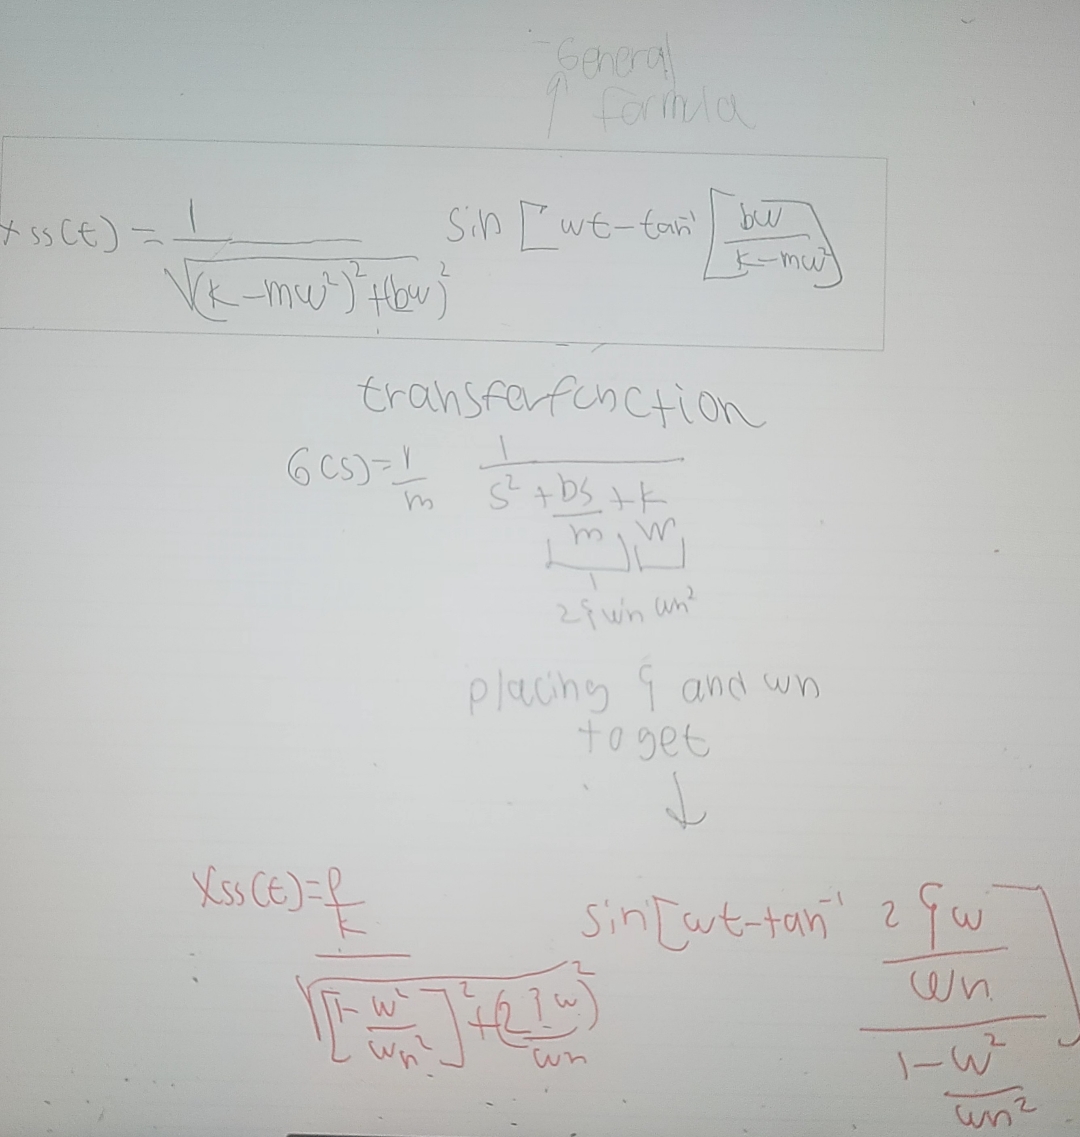 General
formula
xss(t) = 1 / √((k-mw²)² + (bw)²) sin [wt - tan⁻¹ [bw / k-mw²]]
transferfunction
G(s) = 1/m 1 / s² + bs/m + k/m
2ςwn wn²
placing ς and wn
to get
↓
Xss(t) = P/k / √([1 - w²/wn²]² + (2ςw/wn)²) sin[wt-tan⁻¹ 2ςw/wn / 1-w²/wn²]